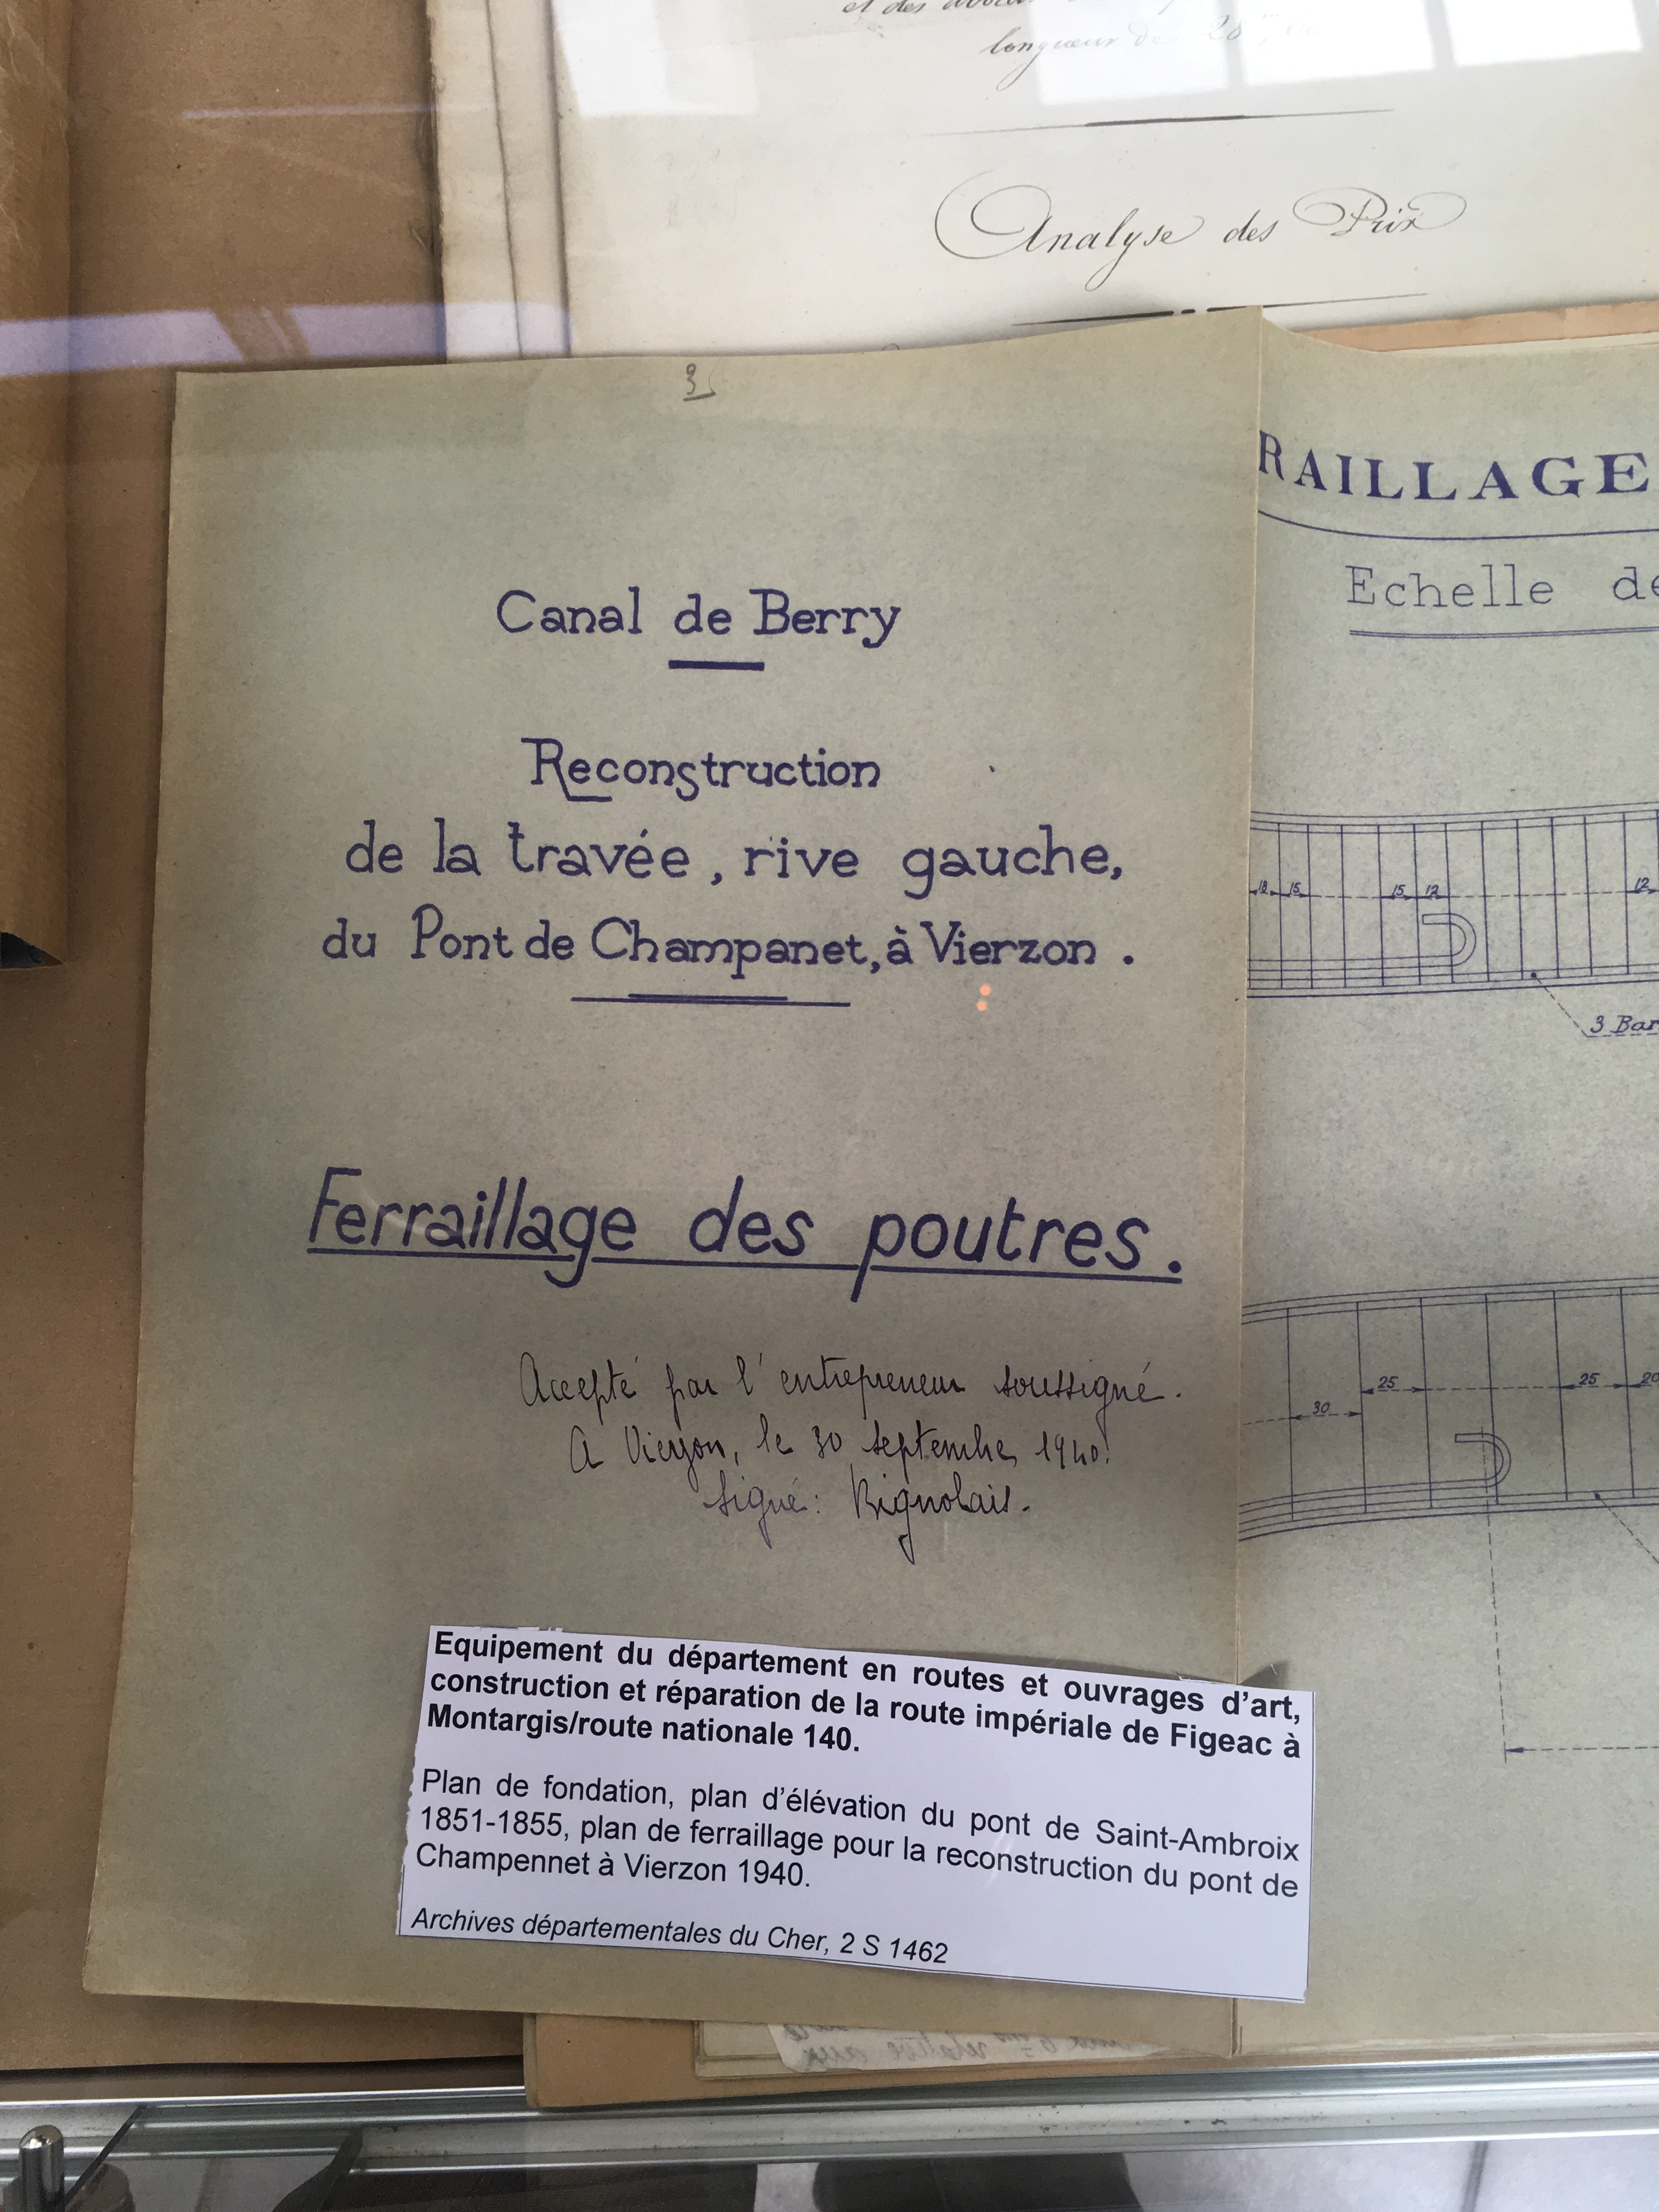 et des
longueur de 28
Analyse des Prix
3
RAILLAGE
Echelle de
Canal de Berry
Reconstruction
de la travée, rive gauche,
du Pont de Champanet, à Vierzon.
15 15 12 12
3 Bar
Ferraillage des poutres.
Accepté par l'entrepreneur soussigné.
A Vierzon, le 30 septembre 1940.
Signé: Bignolais.
30 25 25 20
Equipement du département en routes et ouvrages d'art,
construction et réparation de la route impériale de Figeac à
Montargis/route nationale 140.
Plan de fondation, plan d'élévation du pont de Saint-Ambroix
1851-1855, plan de ferraillage pour la reconstruction du pont de
Champennet à Vierzon 1940.
Archives départementales du Cher, 2 S 1462